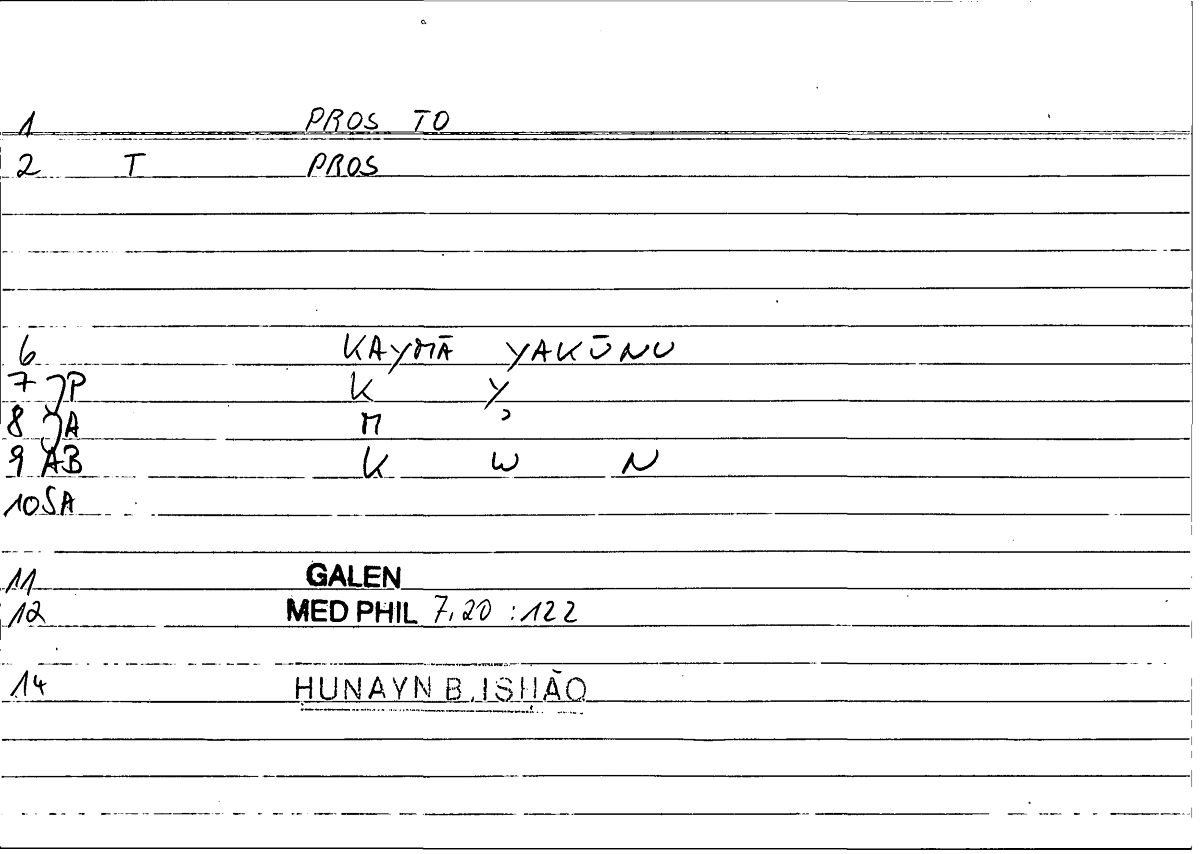 1 PROS TO
2 T PROS
6 KAYMĀ YAKŪNU
7 P K Y
8 A M ʾ
9 AB K W N
10 SA
11 GALEN
12 MED PHIL 7,20 :122
14 HUNAYN B. ISḤĀQ